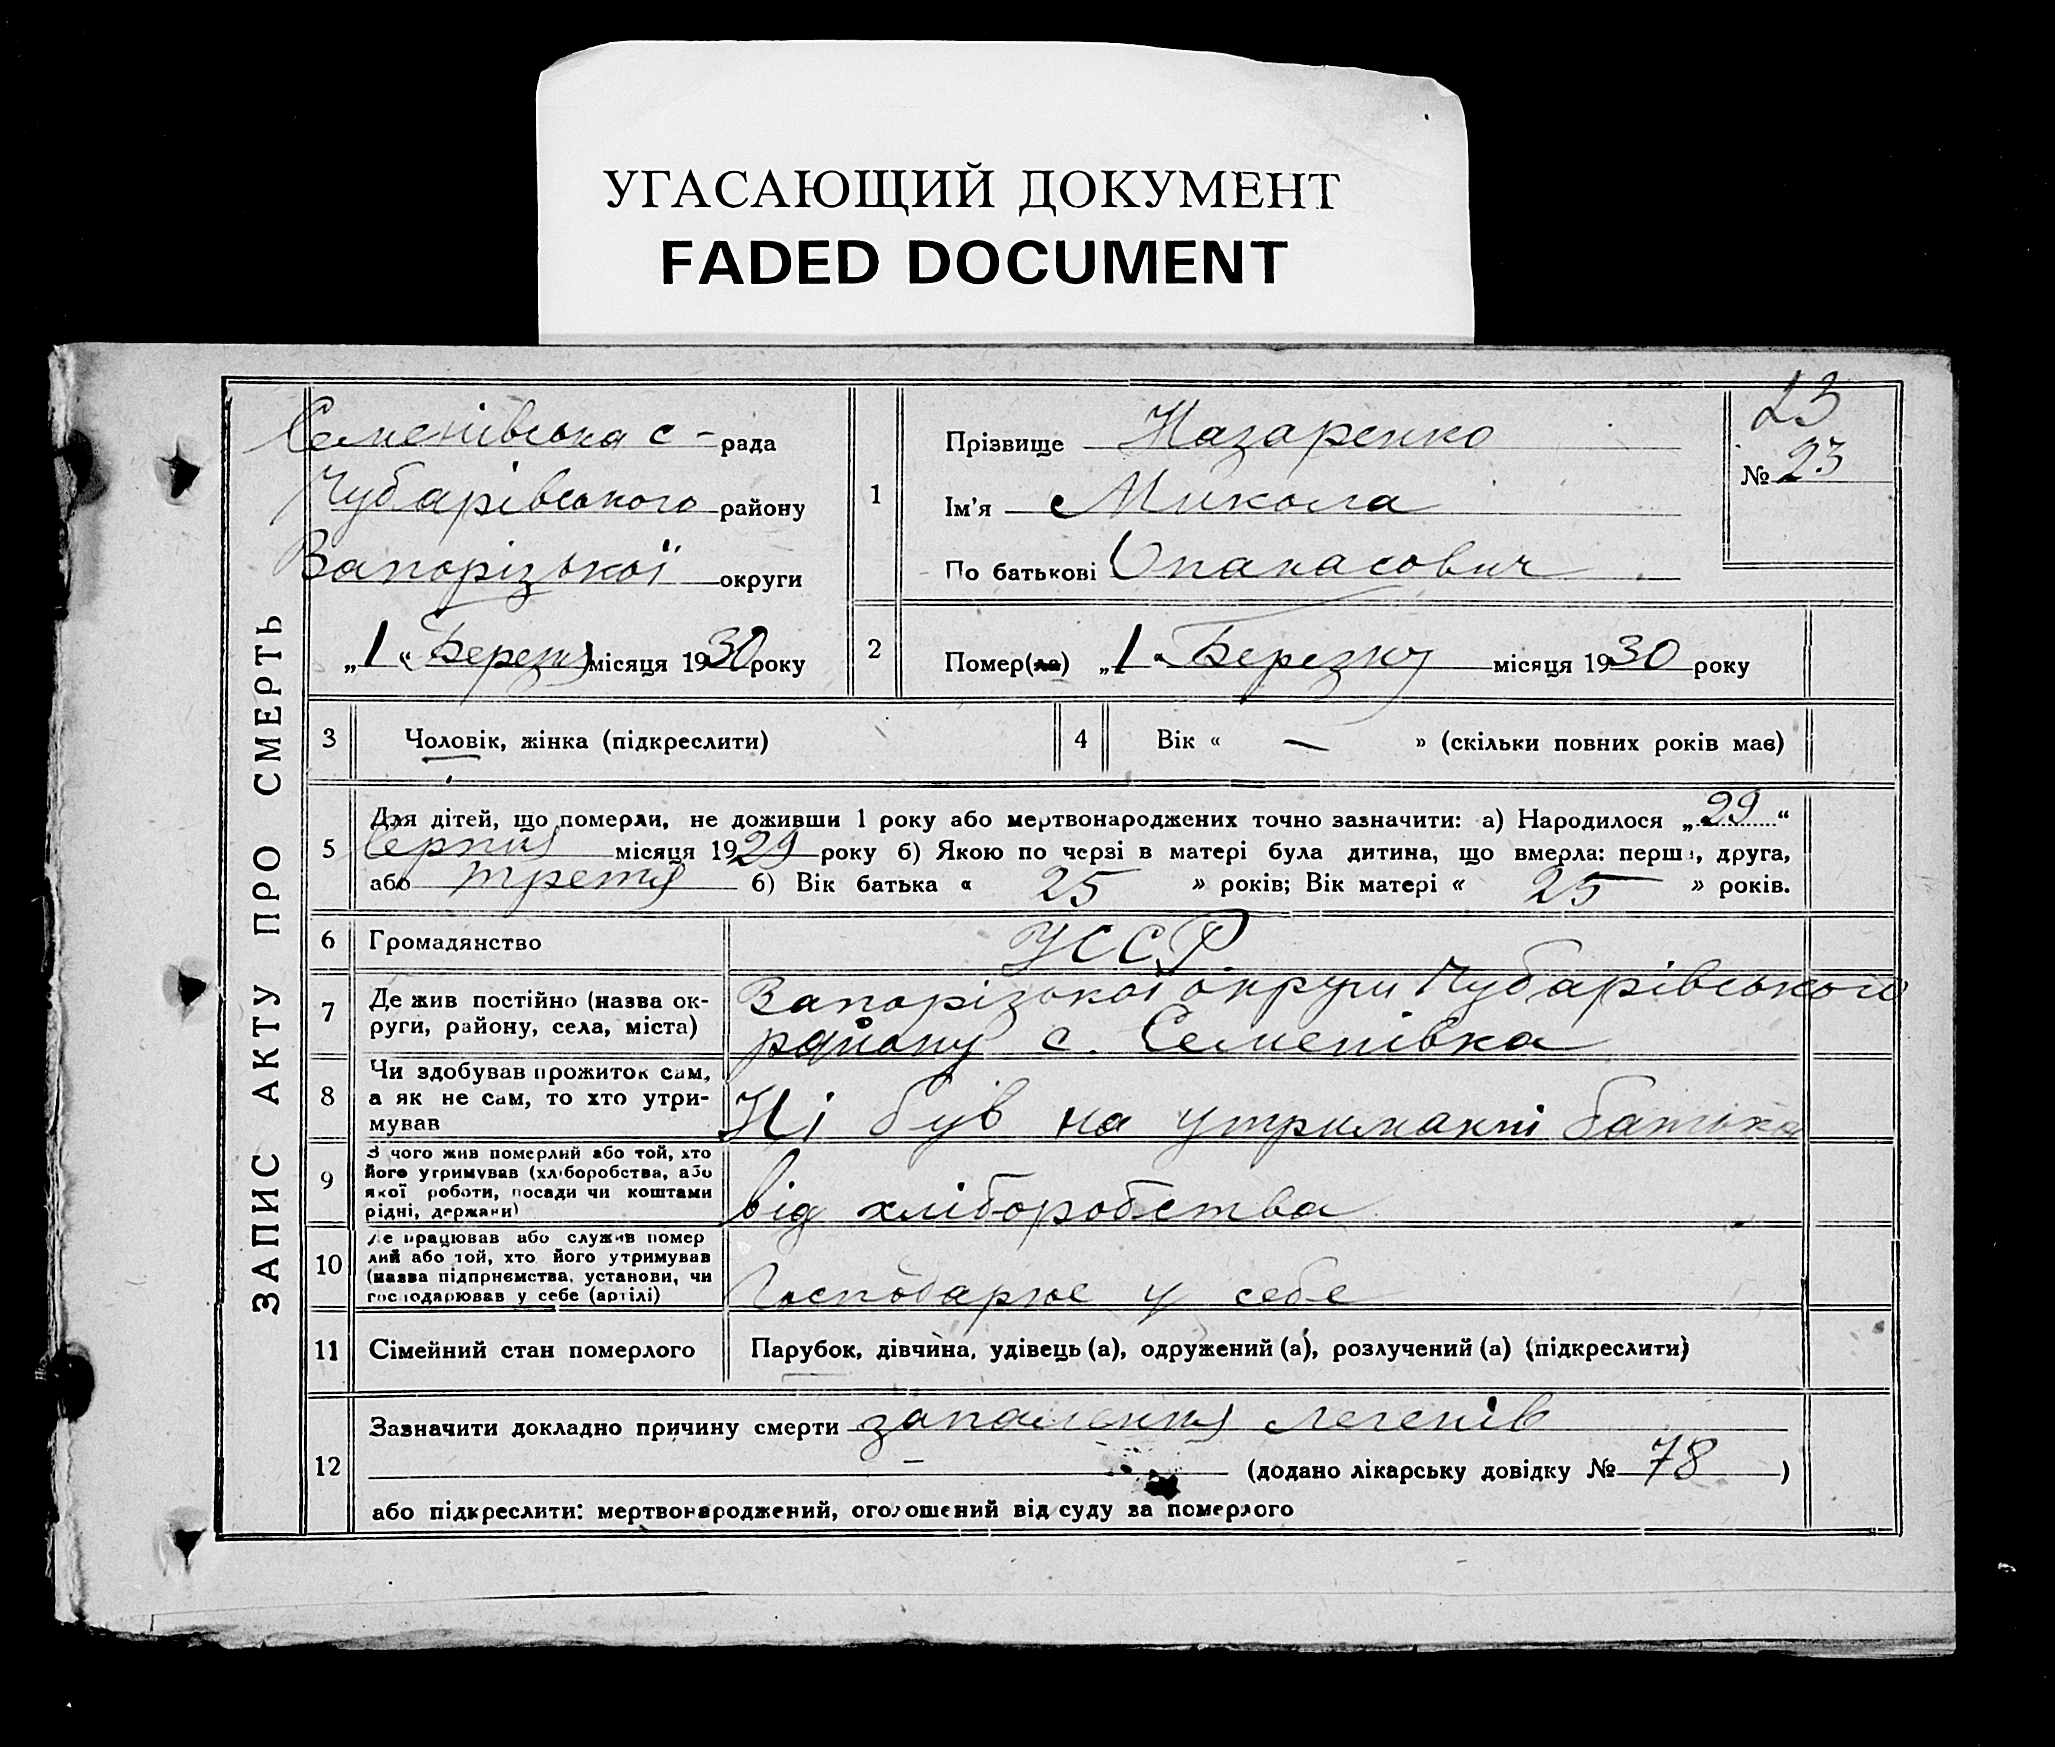 УГАСАЮЩИЙ ДОКУМЕНТ
FADED DOCUMENT
ЗАПИС АКТУ ПРО СМЕРТЬ
Семенівська с - рада
Чубарівського району
Запорізької округи
„1“ Березня місяця 1930 року
1
Прізвище Назаренко
Ім'я Микола
По батькові Опанасович
23
№ 23
2
Помер(ла) „1“ Березню місяця 1930 року
3 Чоловік, жінка (підкреслити)
4 Вік « — » (скільки повних років має)
5
Для дітей, що померли, не доживши 1 року або мертвонароджених точно зазначити: а) Народилося „29“
Серпня місяця 1929 року б) Якою по черзі в матері була дитина, що вмерла: перша, друга,
або третя б) Вік батька « 25 » років; Вік матері « 25 » років.
6 Громадянство УССР
7
Де жив постійно (назва ок-
руги, району, села, міста)
Запорізької округи Чубарівського
району с. Семенівка
8
Чи здобував прожиток сам,
а як не сам, то хто утри-
мував
Ні був на утриманні батька
9
З чого жив померлий або той, хто
його утримував (хліборобства, або
якої роботи, посади чи коштами
рідні, держави)
від хліборобства
10
Де працював або служив помер
лий або той, хто його утримував
(назва підприємства, установи, чи
господарював у себе (артілі)
Господарює у себе
11 Сімейний стан померлого
Парубок, дівчина, удівець (а), одружений (а), розлучений (а) (підкреслити)
12
Зазначити докладно причину смерти запалення легенів
— (додано лікарську довідку № 78)
або підкреслити: мертвонароджений, оголошений від суду за померлого